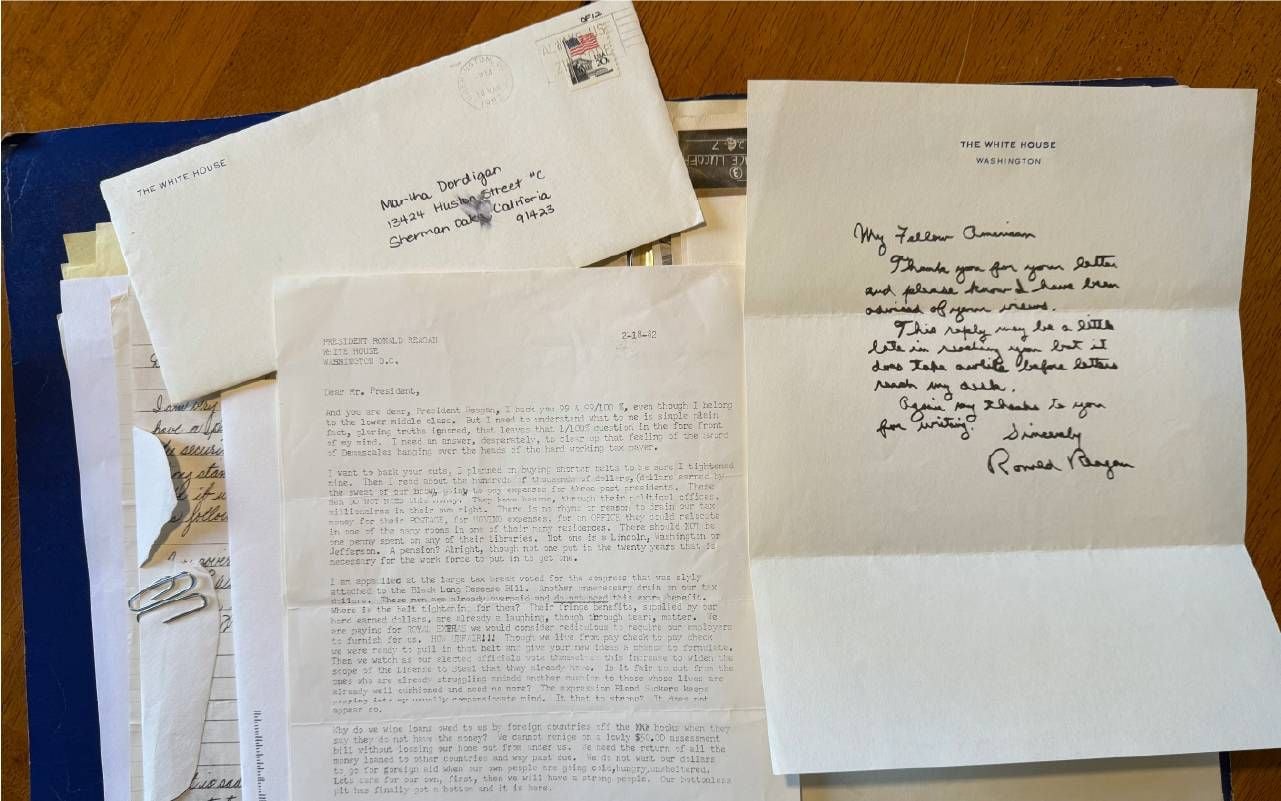 OF12
THE WHITE HOUSE
WASHINGTON
PM
1982
ALWAYS USE
USA 20c
Martha Dordigan
13424 Huston Street "C
Sherman Oaks, California
91423
THE WHITE HOUSE
WASHINGTON
My Fellow American
Thank you for your letter
and please know I have been
advised of your views.
This reply may be a little
late in reaching you but it
does take awhile before letters
reach my desk.
Again my thanks to you
for writing.
Sincerely
Ronald Reagan
2-18-82
PRESIDENT RONALD REAGAN
WHITE HOUSE
WASHINGTON D.C.
Dear Mr. President,
And you are dear, President Reagan, I back you 99 & 99/100 %, even though I belong
to the lower middle class. But I need to understand what to me is simple plain
fact, glaring truths ignored, that leaves that 1/100% question in the fore front
of my mind. I need an answer, desperately, to clear up that feeling of the sword
of Demascales hanging over the heads of the hard working tax payer.
I want to back your cuts, I planned on buying shorter belts to be sure I tightened
mine. Then I read about the hundreds of thousands of dollars, (dollars earned by
the sweat of our brow, going to pay expenses for three past presidents. These
men DO NOT need this money. They have become, through their political offices,
millionaires in their own right. There is no rhyme or reason to drain our tax
money for their POSTAGE, for MOVING expenses, for an OFFICE they could relocate
in one of the many rooms in one of their many residences. There should NOT be
one penny spent on any of their libraries. Not one is a Lincoln, Washington or
Jefferson. A pension? Alright, though not one put in the twenty years that is
necessary for the work force to put in to get one.
I am appalled at the large tax break voted for the congress that was slyly
attached to the Black Lung Desease Bill. Another unnecessary drain on our tax
dollars. These men are already overpaid and do not need this extra benefit.
Where is the belt tightening for them? Their fringe benefits, supplied by our
hard earned dollars, are already a laughing, though through tears, matter. We
are paying for ROYAL EXTRAS we would consider rediculous to require our employers
to furnish for us. HOW UNFAIR!!! Though we live from pay check to pay check
we were ready to pull in that belt and give your new ideas a chance to formulate.
Then we watch as our elected officials vote themselves this increase to widen the
scope of the License to Steal that they already have. Is it fair to cut from the
ones who are already struggling and add another cushion to those whose lives are
already well cushioned and need no more? The expression Blood Suckers keeps
my usually compassionate mind. Is that to strong? It does not
appear so.
Why do we wipe loans owed to us by foreign countries off the books when they
say they do not have the money? We cannot renige on a lowly $50.00 assessment
bill without lossing our home out from under us. We need the return of all the
money loaned to other countries and way past due. We do not want our dollars
to go for foreign aid when our own people are going cold,hungry,unsheltered.
Lets care for our own, first, then we will have a strong people. Our bottomless
pit has finally got a bottom and it is here.